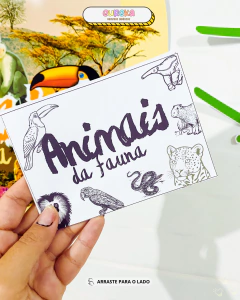 Animais
da fauna
ARRASTE PARA O LADO